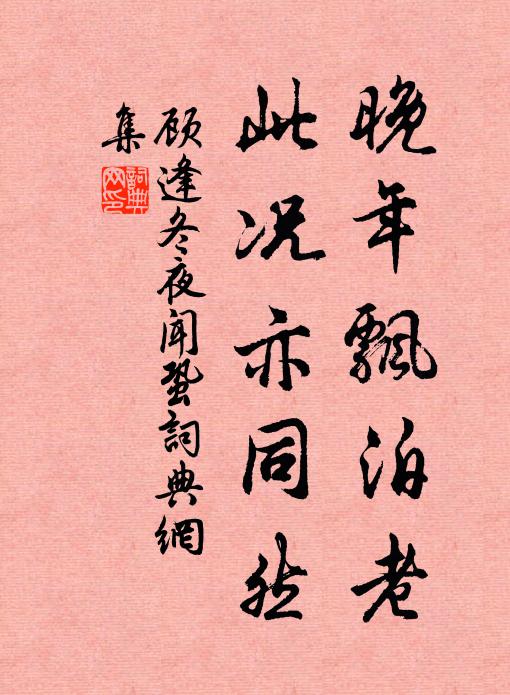 晚年飄泊老
此况亦同然
顾逢冬夜闻蛩詞典網
集
詞典网印